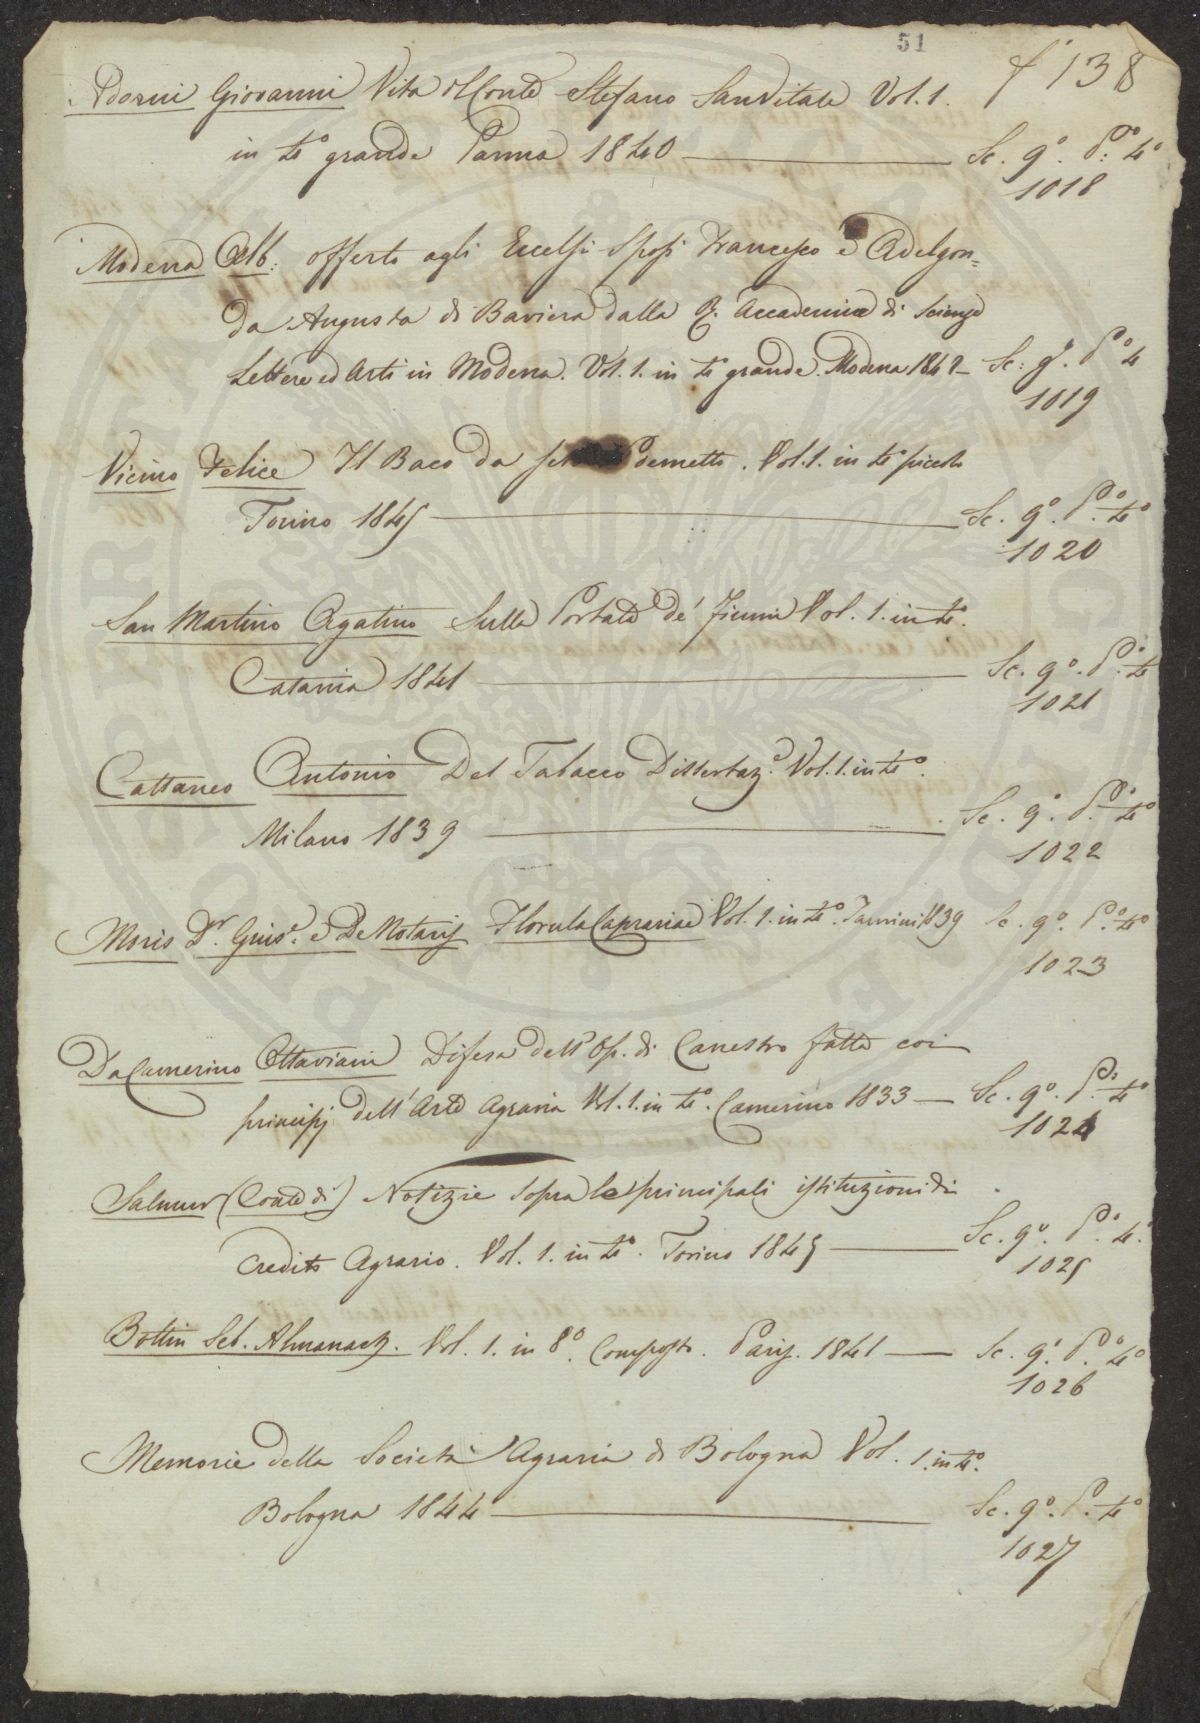 51
f° 138
Adorni Giovanni Vita del Conte Stefano Sanvitale Vol. 1.
in 4° grande Parma 1840 — Sc. 9°. P°. 4°
1018
Modena Alb: offerto agli Eccelsi Sposi Francesco e Adelgon=
da Augusta di Baviera dalla R. Accademia di Scienze
Lettere ed Arti in Modena. Vol. 1. in 4° grande. Modena 1842 — Sc. 9°. P° 4
1019
Vicino Felice Il Baco da Poemetto. Vol. 1. in 4° piccolo
Torino 1845 — Sc. 9°. P°. 4°
1020
San Martino Agatino Sulla Portata de' Fiumi Vol. 1. in 4°.
Catania 1841 — Sc. 9°. P°. 4°
1021
Cattaneo Antonio Del Tabacco Dissertaz.e Vol. 1. in 4°.
Milano 1839 — Sc. 9°. P°. 4°
1022
Moris Dr. Gius.e e De Notaris Florula Caprariae Vol. 1. in 4°. Taurini 1839 Sc. 9°. P°. 4°
1023
Da Camerino Ottaviani Difesa dell' Op. di Canestro fatta coi
principj dell' Arte Agraria Vol. 1. in 4°. Camerino 1833 — Sc. 9°. P°. 4°
1024
Salmur (Conte di) Notizie sopra le principali istituzioni di
Credito Agrario. Vol. 1. in 4°. Torino 1845 — Sc. 9°. P°. 4°.
1025
Bottin Seb. Almanach. Vol. 1. in 8°. Composto. Paris. 1841 — Sc. 9°. P°. 4°
1026
Memorie della Società Agraria di Bologna Vol. 1. in 4°.
Bologna 1844 — Sc. 9°. P°. 4°
1027